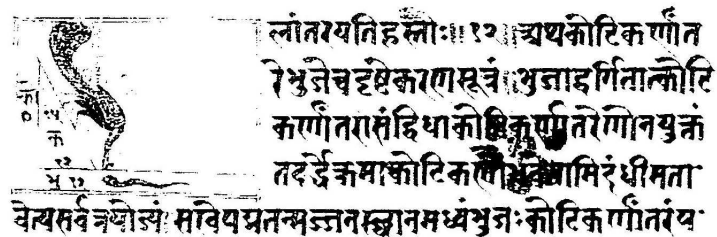 लांतरयतिहस्तोः॥ १२ अथकोटिकर्णांत
रेभुजेचदृष्टेकरणसूत्रं॥भुजाद्वर्गितात्कोटि
कर्णांतराप्तंद्विधाकोटिकर्णांतरेणोनयुक्तं
तदर्द्धेक्रमात्कोटिकर्णौभवेतामिदंधीमता
वेत्यसर्वत्रयोज्यं॥सखेपद्मतन्मज्जनस्थानमध्यंभुजःकोटिकर्णांतरंप
क
०
१५
क
१२
भु १२